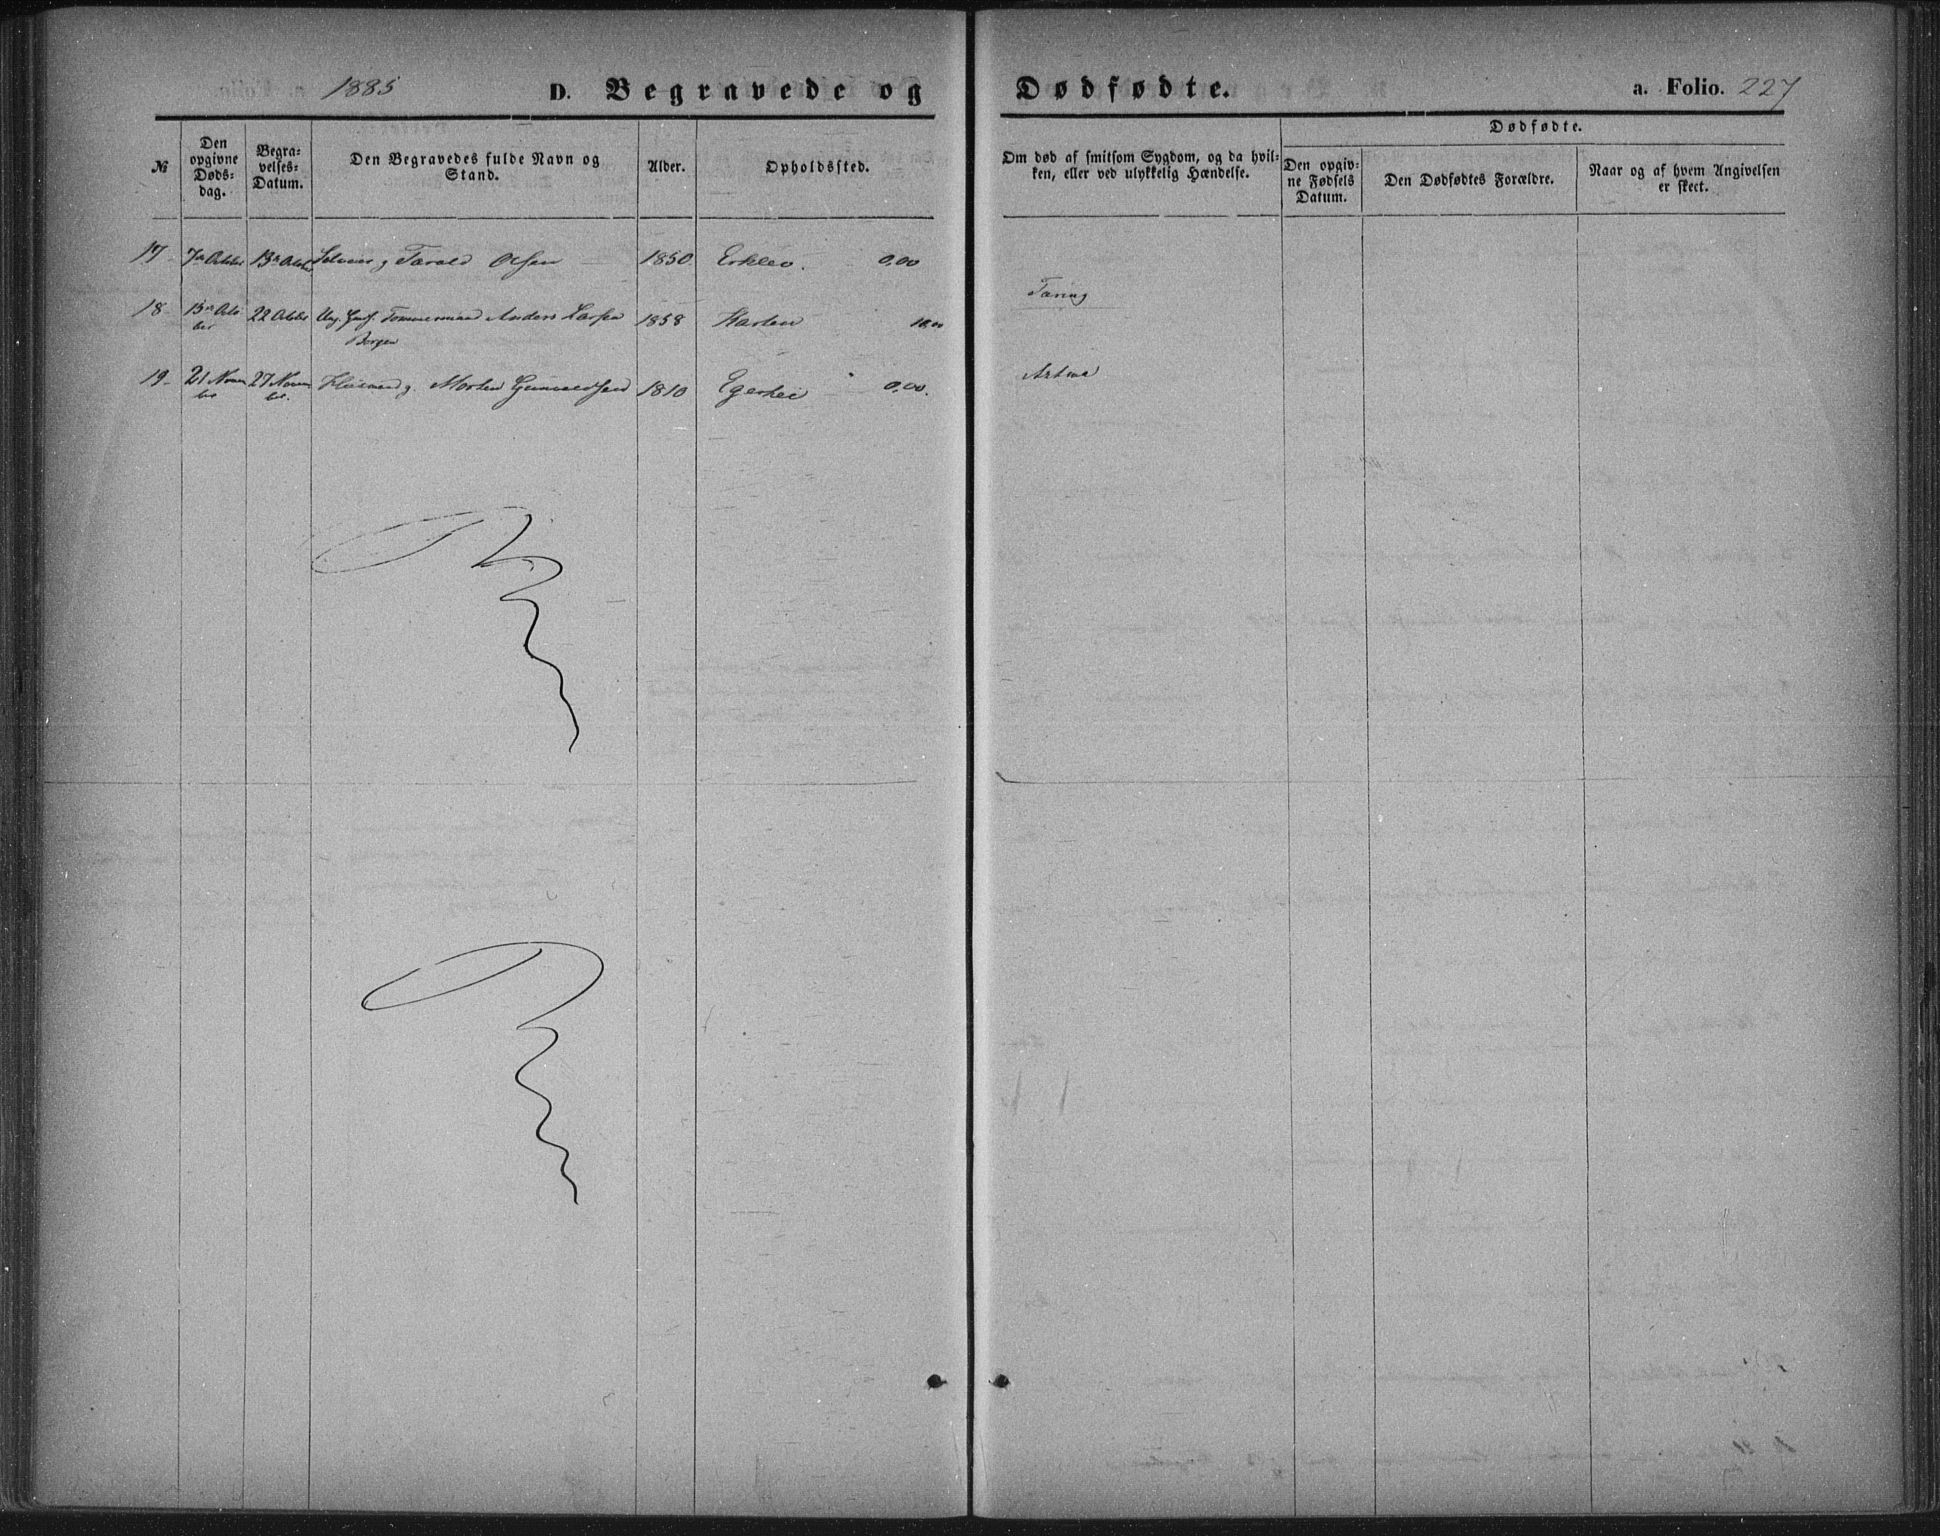 1885 D. Begravede og Dødfødte. a. Folio. 227
№
Den opgivne Døds-dag.
Begra-velses-Datum.
Den Begravedes fulde Navn og Stand.
Alder.
Opholdssted.
Om død af smitsom Sygdom, og da hvil-
ken, eller ved ulykkelig Hændelse.
Dødfødte.
Den opgiv-
ne Fødsels
Datum.
Den Dødfødtes Forældre.
Naar og af hvem Angivelsen
er skeet.
17 7de Octbr 13de Octbr Tarald Olsen 1850 Erklev. 0,00
Tæring
18 15de Octo 22 Octbr Ung. Tømmermand Anders Larsen 1858 10,00
ber
Bergen
19 21 Novem 27 Novem Morten Gunvaldsen 1810 0,00.
ber ber.
Astma